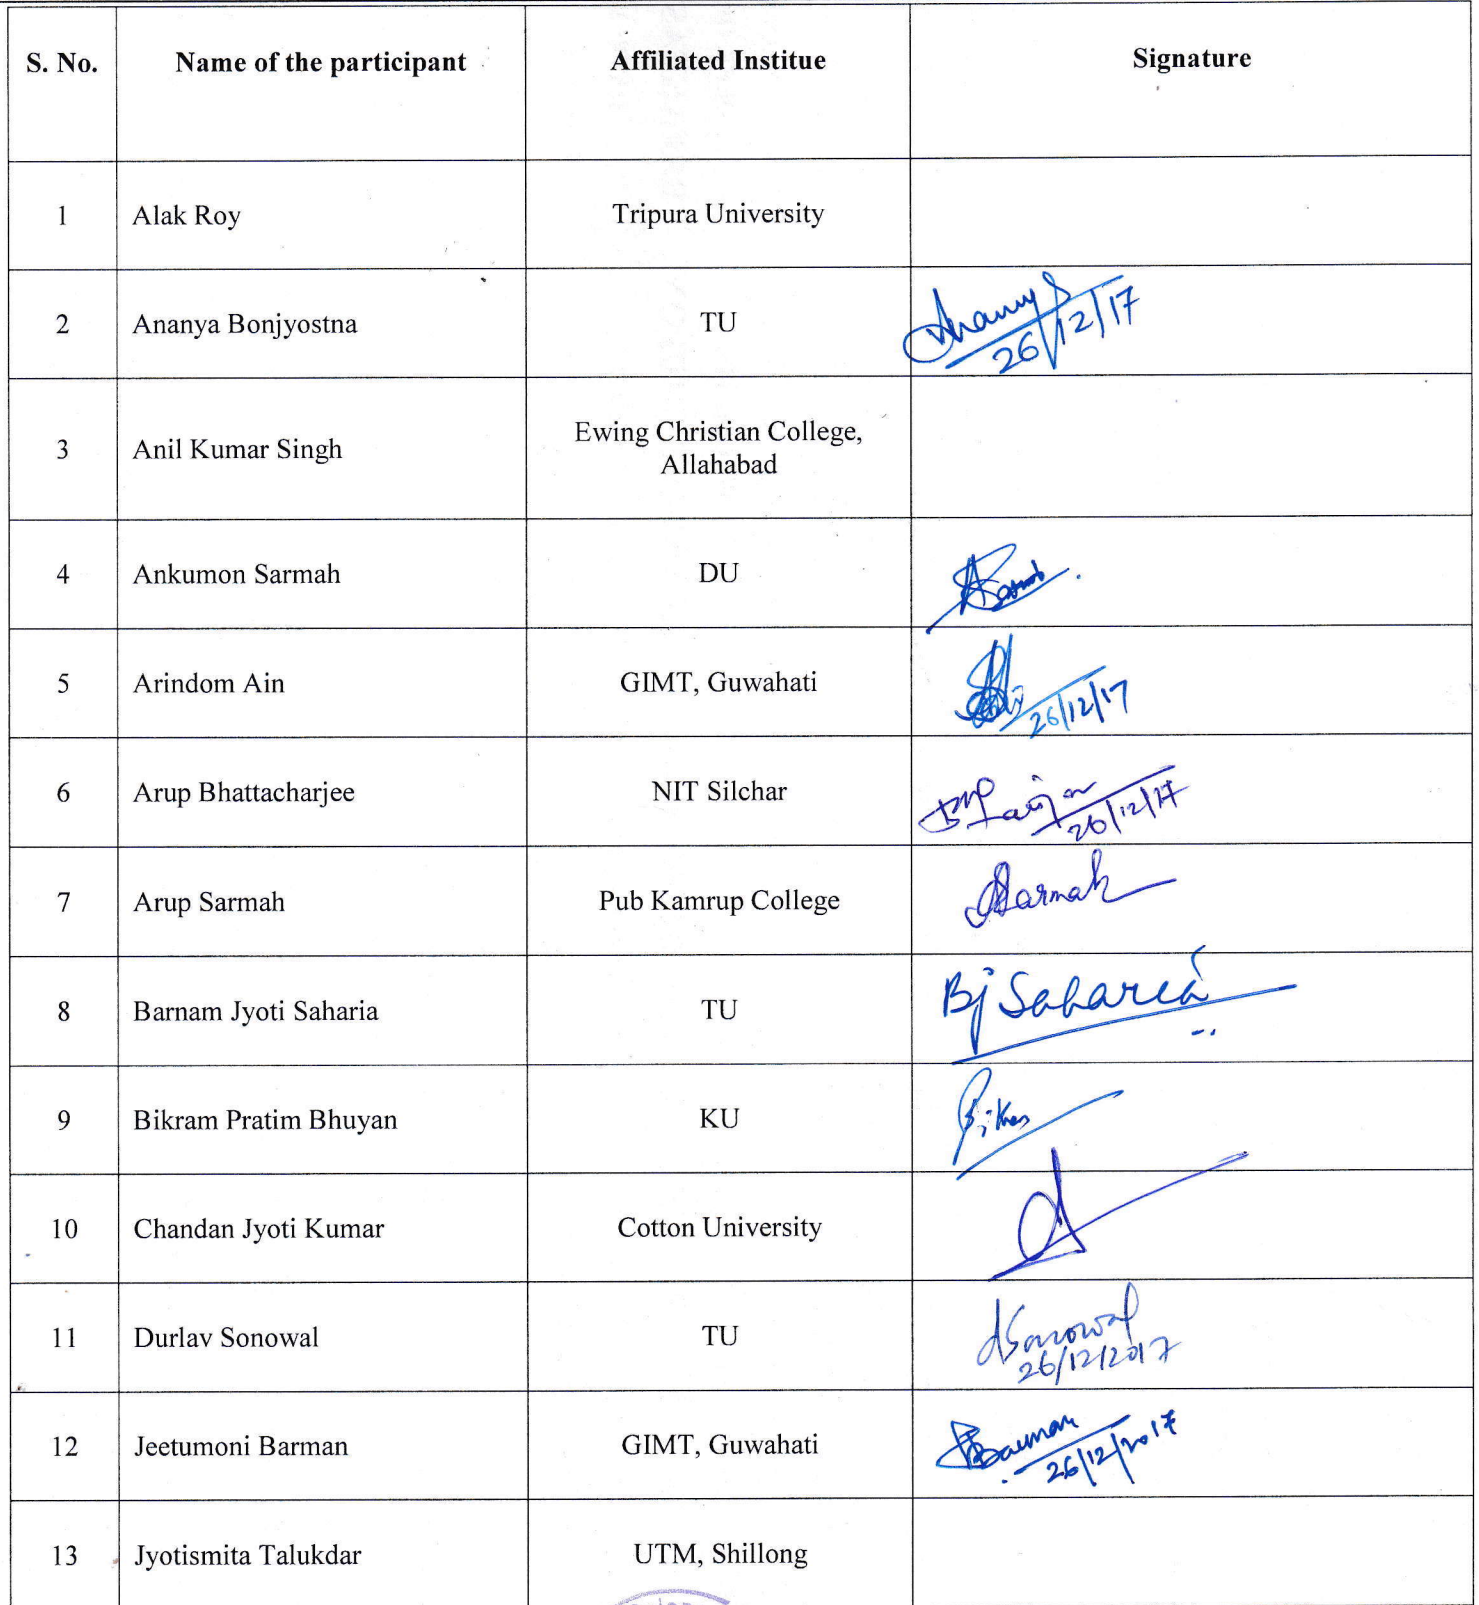 S. No. Name of the participant Affiliated Institue Signature
1 Alak Roy Tripura University
2 Ananya Bonjyostna TU Ananya
26/12/17
3 Anil Kumar Singh Ewing Christian College,
Allahabad
4 Ankumon Sarmah DU
5 Arindom Ain GIMT, Guwahati
26/12/17
6 Arup Bhattacharjee NIT Silchar
26/12/17
7 Arup Sarmah Pub Kamrup College ASarmah
8 Barnam Jyoti Saharia TU Bj Saharia
9 Bikram Pratim Bhuyan KU
10 Chandan Jyoti Kumar Cotton University
11 Durlav Sonowal TU dSonowal
26/12/2017
12 Jeetumoni Barman GIMT, Guwahati Barman
26/12/2017
13 Jyotismita Talukdar UTM, Shillong